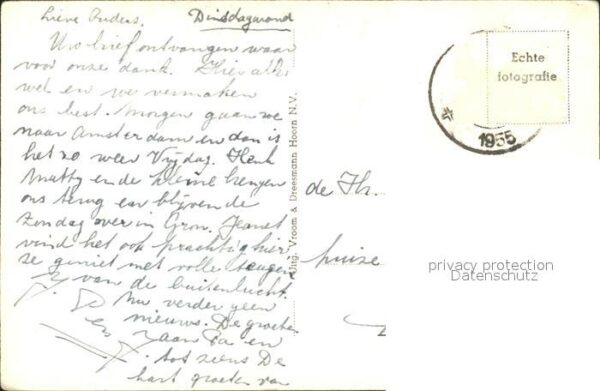 Lieve Ouders. Dinsdagavond
Uw brief ontvangen waar
voor onze dank. Hier alles
wel en we vermaken
ons best. Morgen gaan we
naar Amsterdam en dan is
het zo weer Vrijdag. Henk
Matty en de kleine brengen
ons terug en blijven de
Zondag over in Gron. Jeanet
vind het ook prachtig hier
ze geniet met volle teugen
van de buitenlucht.
Nu verder geen
nieuws. De groeten
aan Pa en
tot ziens De
hart. groeten van
Uitg. Vroom & Dreesmann Hoorn N.V.
Echte
fotografie
1955
de Fh.
huize
privacy protection
Datenschutz